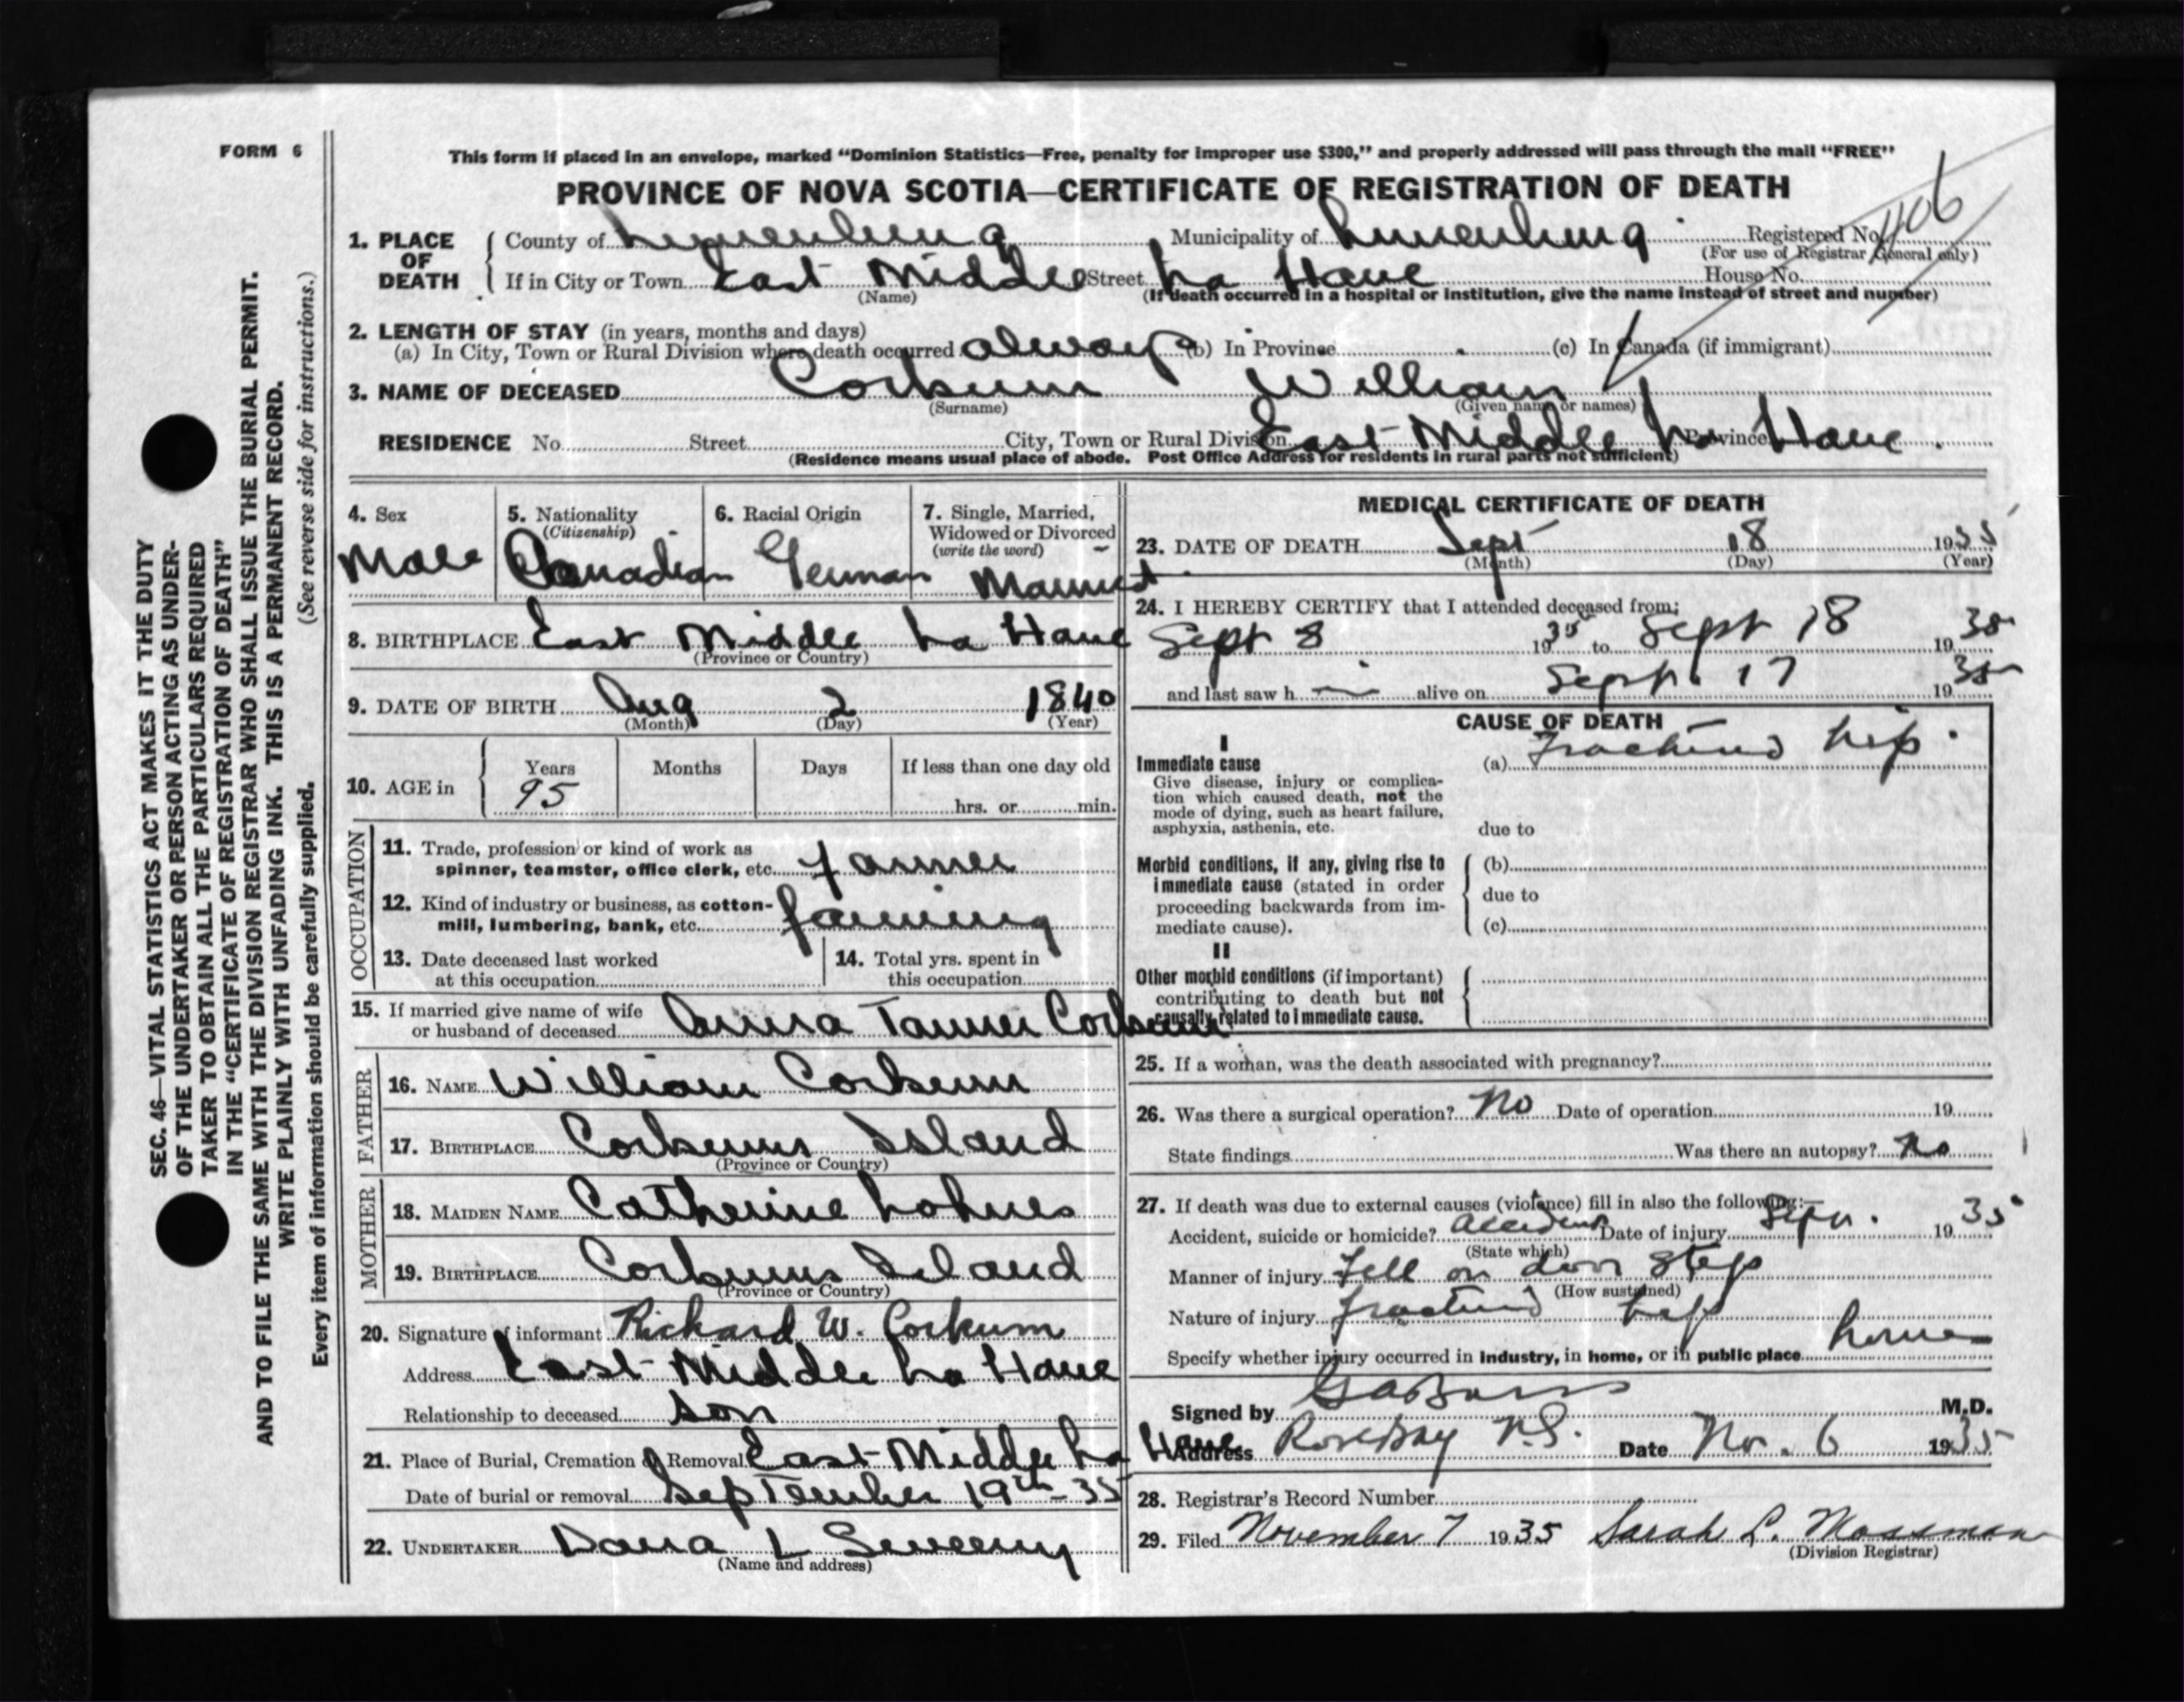 FORM 6
This form if placed in an envelope, marked “Dominion Statistics—Free, penalty for improper use $300,” and properly addressed will pass through the mail “FREE”
PROVINCE OF NOVA SCOTIA—CERTIFICATE OF REGISTRATION OF DEATH
1. PLACE OF DEATH
County of Lunenburg Municipality of Lunenburg Registered No. 406
(For use of Registrar General only)
If in City or Town East Middle Street La Have House No.
(Name) (If death occurred in a hospital or institution, give the name instead of street and number)
2. LENGTH OF STAY (in years, months and days)
(a) In City, Town or Rural Division where death occurred always (b) In Province (c) In Canada (if immigrant)
3. NAME OF DECEASED Corkum William
(Surname) (Given name or names)
RESIDENCE No. Street City, Town or Rural Division East Middle La Province Have.
(Residence means usual place of abode. Post Office Address for residents in rural parts not sufficient)
4. Sex
Male
5. Nationality
(Citizenship)
Canadian
6. Racial Origin
German
7. Single, Married,
Widowed or Divorced
(write the word)
Married
8. BIRTHPLACE East Middle La Have
(Province or Country)
9. DATE OF BIRTH Aug 2 1840
(Month) (Day) (Year)
10. AGE in Years Months Days If less than one day old
95 hrs. or min.
OCCUPATION
11. Trade, profession or kind of work as
spinner, teamster, office clerk, etc. farmer
12. Kind of industry or business, as cotton-
mill, lumbering, bank, etc. farming
13. Date deceased last worked
at this occupation
14. Total yrs. spent in
this occupation
15. If married give name of wife
or husband of deceased Anna Tanner Corkum
FATHER
16. NAME William Corkum
17. BIRTHPLACE Corkums Island
(Province or Country)
MOTHER
18. MAIDEN NAME Catherine Lohnes
19. BIRTHPLACE Corkums Island
(Province or Country)
20. Signature of informant Richard W. Corkum
Address East Middle La Have
Relationship to deceased son
21. Place of Burial, Cremation or Removal East Middle La Have
Date of burial or removal September 19th - 35
22. UNDERTAKER Dana L Sweeny
(Name and address)
MEDICAL CERTIFICATE OF DEATH
23. DATE OF DEATH Sept 18 1935
(Month) (Day) (Year)
24. I HEREBY CERTIFY that I attended deceased from;
Sept 8 1935 to Sept 18 1935
and last saw h alive on Sept. 17 1935
CAUSE OF DEATH
I
Immediate cause (a) Fractured hip.
Give disease, injury or complica-
tion which caused death, not the
mode of dying, such as heart failure,
asphyxia, asthenia, etc. due to
Morbid conditions, if any, giving rise to (b)
immediate cause (stated in order due to
proceeding backwards from im-
mediate cause). (c)
II
Other morbid conditions (if important)
contributing to death but not
causally related to immediate cause.
25. If a woman, was the death associated with pregnancy?
26. Was there a surgical operation? No Date of operation 19
State findings Was there an autopsy? No
27. If death was due to external causes (violence) fill in also the following:—
Accident, suicide or homicide? accident Date of injury Sept. 1935
(State which)
Manner of injury Fell on door step
(How sustained)
Nature of injury fractured hip
Specify whether injury occurred in industry, in home, or in public place home
Signed by M.D.
Address Rose Bay N.S. Date Nov. 6 1935
28. Registrar's Record Number
29. Filed November 7 1935 Sarah L. Mossman
(Division Registrar)
SEC. 46—VITAL STATISTICS ACT MAKES IT THE DUTY
OF THE UNDERTAKER OR PERSON ACTING AS UNDER-
TAKER TO OBTAIN ALL THE PARTICULARS REQUIRED
IN THE “CERTIFICATE OF REGISTRATION OF DEATH”
AND TO FILE THE SAME WITH THE DIVISION REGISTRAR WHO SHALL ISSUE THE BURIAL PERMIT.
WRITE PLAINLY WITH UNFADING INK. THIS IS A PERMANENT RECORD.
Every item of information should be carefully supplied. (See reverse side for instructions.)